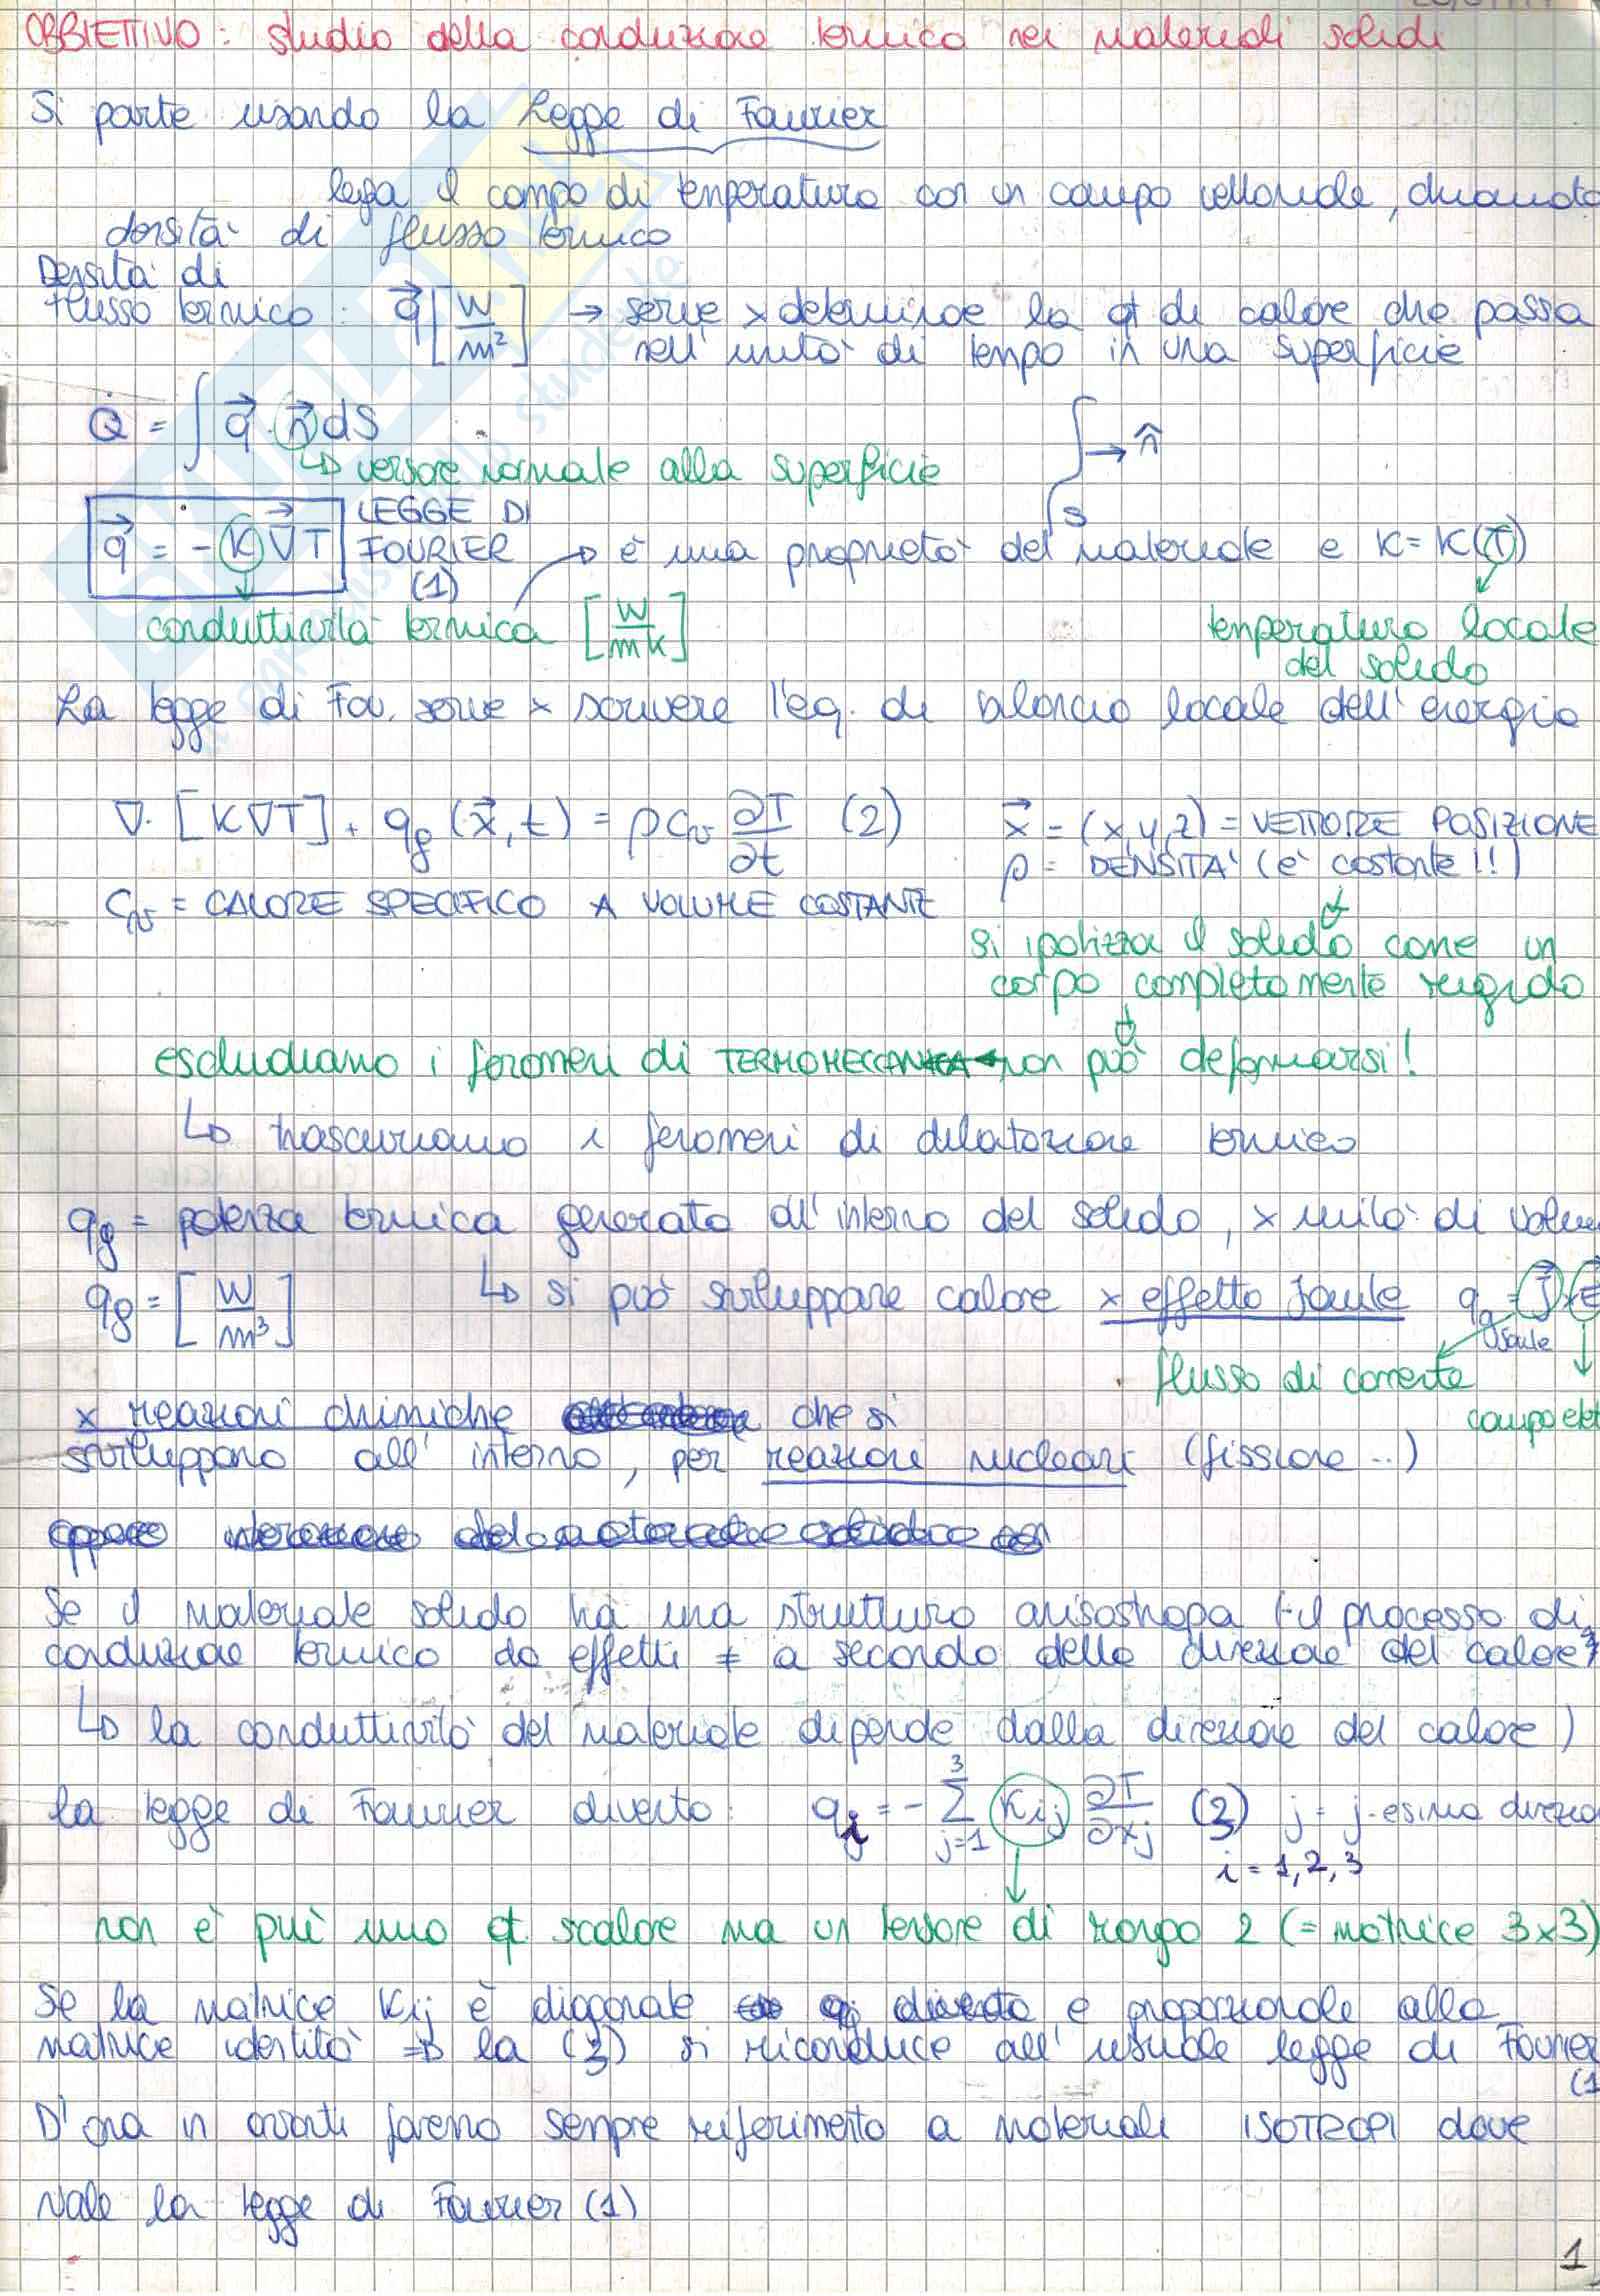 OBBIETTIVO: studio della conduzione termica nei materiali solidi
Si parte usando la Legge di Fourier
lega il campo di temperatura con un campo vettoriale, chiamato
densità di flusso termico
Densità di
flusso termico: q⃗ [W/m²] → serve x determinare la qt di calore che passa
nell'unità di tempo in una superficie
Q̇ = ∫ q⃗ · n⃗ dS
↳ versore normale alla superficie
→ n̂
S
q⃗ = -K ∇⃗T LEGGE DI FOURIER (1) → è una proprietà del materiale e K = K(T)
conduttività termica [W/mK]
temperatura locale
del solido
La legge di Fou. serve x scrivere l'eq. di bilancio locale dell'energia
∇· [K∇T] + qg (x⃗, t) = ρ cv ∂T/∂t (2)
x⃗ = (x,y,z) = VETTORE POSIZIONE
ρ = DENSITA' (è costante!!)
cv = CALORE SPECIFICO A VOLUME COSTANTE
si ipotizza il solido come un
corpo completamente rigido
escludiamo i fenomeni di TERMOMECCANICA ← non può deformarsi!
↳ trascuriamo i fenomeni di dilatazione termica
qg = potenza termica generata all'interno del solido, x unità di volu
qg = [W/m³] ↳ si può sviluppare calore x effetto Joule qg
Joule
flusso di corrente
campo elet
x reazioni chimiche che si
sviluppano all'interno, per reazioni nucleari (fissione ..)
Se il materiale solido ha una struttura anisotropa (→ il processo di
conduzione termica da effetti ≠ a seconda della direzione del calore
↳ la conduttività del materiale dipende dalla direzione del calore)
la legge di Fourier diventa: qi = - Σ³j=1 Kij ∂T/∂xj (3) j = j-esima direzio
i = 1, 2, 3
non è più una qt scalare ma un tensore di rango 2 (= matrice 3x3)
Se la matrice Kij è diagonale e proporzionale alla
matrice identità ⇒ la (3) si riconduce all'usuale legge di Fourier
(1
D'ora in avanti faremo sempre riferimento a materiali ISOTROPI dove
vale la legge di Fourier (1)
1